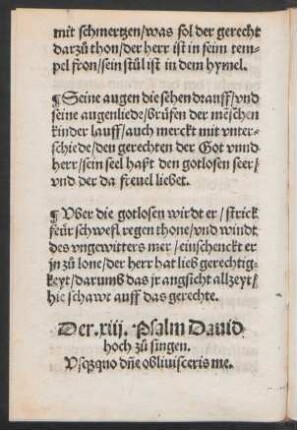 mit schmertzen/was sol der gerecht
darzů thon/der herr ist in seim tem-
pel fron/sein stůl ist in dem hymel.
¶ Seine augen die sehen drauff/vnd
seine augenliede/brüfen der mẽschen
kinder lauff/auch merckt mit vnter-
schiede/den gerechten der Got vnnd
herr/sein seel haßt den gotlosen seer/
vnd der da freuel liebet.
¶ Vber die gotlosen wirdt er/strick
feür schwefl regen thone/vnd windt
des vngewitters mer/einschenckt er
jn zů lone/der herr hat lieb gerechtig-
keyt/darumb das jr angsicht allzeyt/
hie schawt auff das gerechte.
Der .xiij. Psalm Dauid
hoch zů singen.
Vsqzquo dñe obliuisceris me.